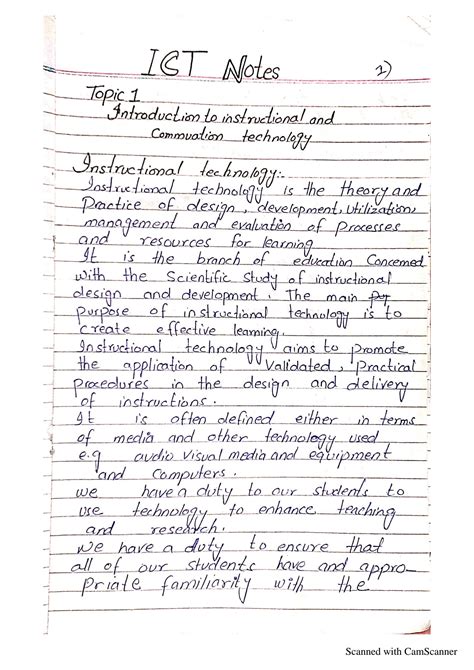 ICT Notes 1)
Topic 1
Introduction to instructional and
Commuation technology
Instructional technology:-
Instructional technology is the theory and
Practice of design, development, Utilization,
management and evaluation of Processes
and resources for learning
It is the branch of education Concerned
with the Scientific Study of instructional
design and development. The main
purpose of instructional technology is to
create effective learning.
Instructional technology aims to promote
the application of Validated, Practical
Procedures in the design and delivery
of instructions.
It is often defined either in terms
of media and other technology used
e.g audio visual media and equipment
and Computers.
we have a duty to our students to
use technology to enhance teaching
and research.
We have a duty to ensure that
all of our students have and appro-
priate familiarity with the
Scanned with CamScanner